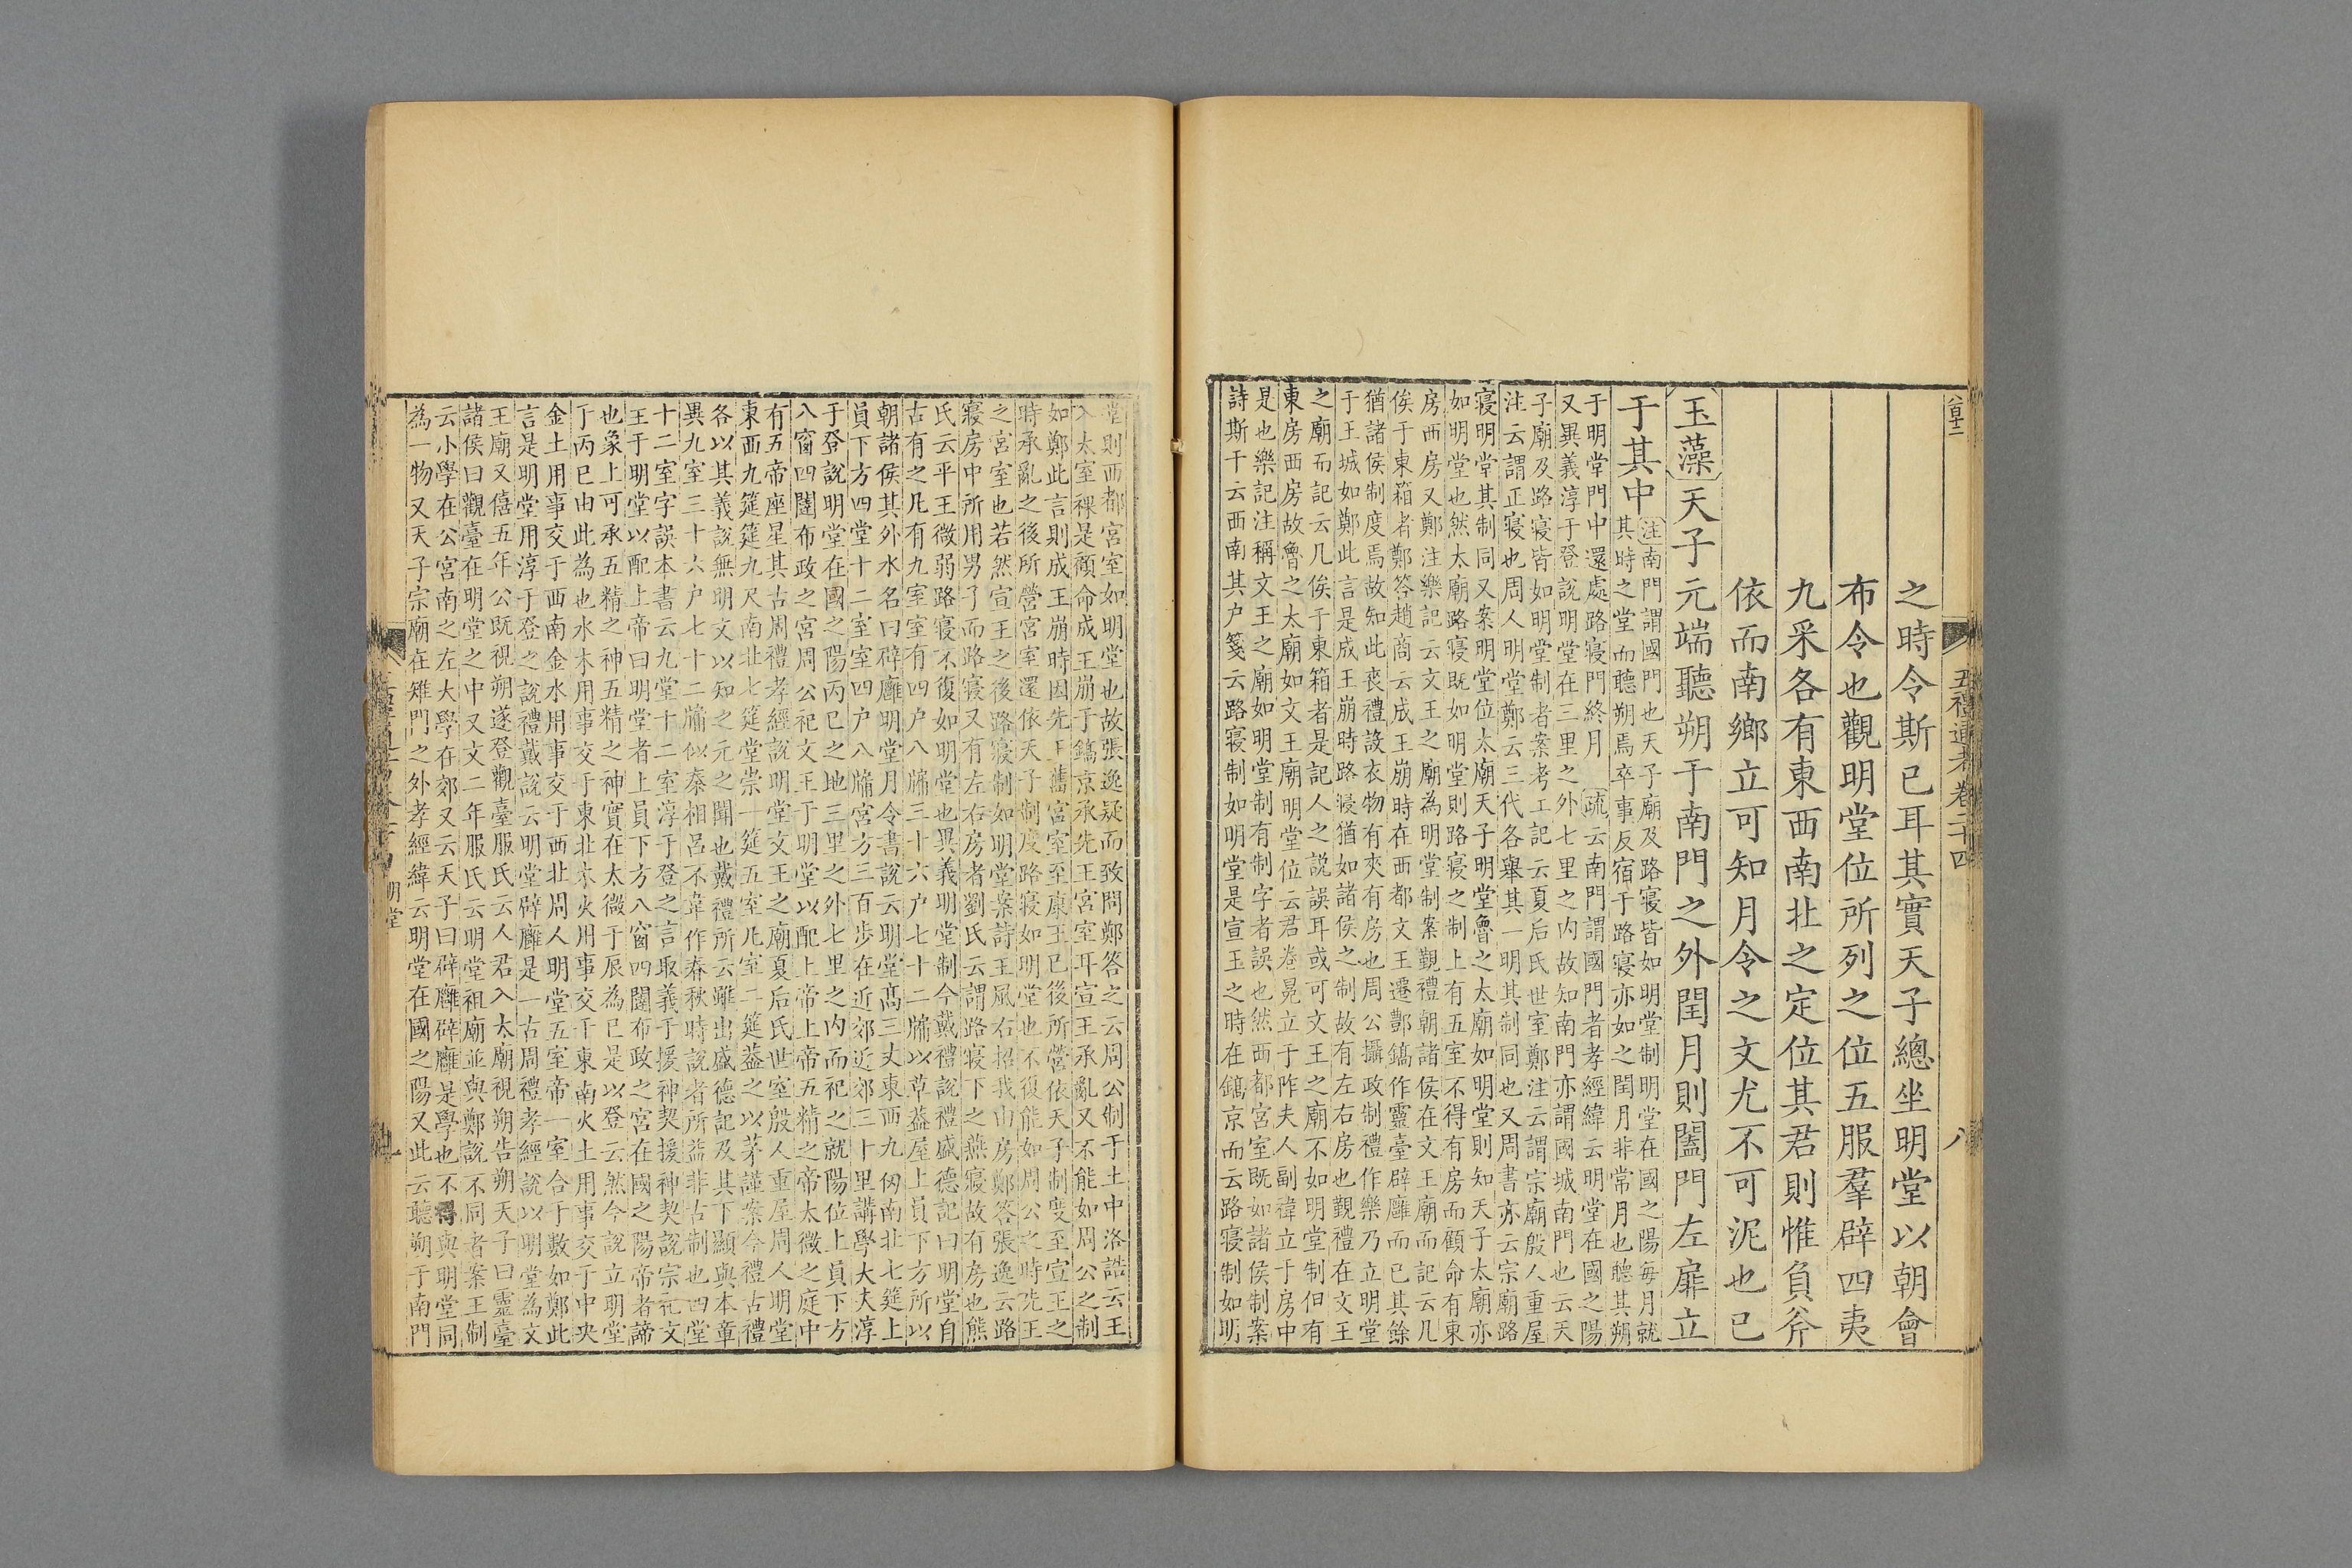 八百十二
五禮通考卷二十四
八
之時令斯已耳其實天子總坐明堂以朝會
布令也觀明堂位所列之位五服羣辟四夷
九采各有東西南北之定位其君則惟負斧
依而南鄉立可知月令之文尤不可泥也已
玉藻天子元端聽朔于南門之外閏月則闔門左扉立
于其中
注南門謂國門也天子廟及路寢皆如明堂制明堂在國之陽每月就
其時之堂而聽朔焉卒事反宿于路寢亦如之閏月非常月也聽其朔
于明堂門中還處路寢門終月 疏云南門謂國門者孝經緯云明堂在國之陽
又異義淳于登說明堂在三里之外七里之内故知南門亦謂國城南門也云天
子廟及路寢皆如明堂制者案考工記云夏后氏世室鄭注云謂宗廟殷人重屋
注云謂正寢也周人明堂鄭云三代各舉其一明其制同也又周書亦云宗廟路
寢明堂其制同又案明堂位太廟天子明堂魯之太廟如明堂則知天子太廟亦
如明堂也然太廟路寢既如明堂則路寢之制上有五室不得有房而顧命有東
房西房又鄭注樂記云文王之廟為明堂制案覲禮朝諸侯在文王廟而記云几
俟于東箱者鄭答趙商云成王崩時在西都文王遷酆鎬作靈臺辟廱而已其餘
猶諸侯制度焉故知此喪禮設衣物有夾有房也周公攝政制禮作樂乃立明堂
于王城如鄭此言是成王崩時路寢猶如諸侯之制故有左右房也覲禮在文王
之廟而記云几俟于東箱者是記人之說誤耳或可文王之廟不如明堂制但有
東房西房故魯之太廟如文王廟明堂位云君卷冕立于阼夫人副褘立于房中
是也樂記注稱文王之廟如明堂制有制字者誤也然西都宮室既如諸侯制案
詩斯干云西南其户箋云路寢制如明堂是宣王之時在鎬京而云路寢制如明
堂則西都宮室如明堂也故張逸疑而致問鄭答之云周公制于土中洛誥云王
入太室祼是顧命成王崩于鎬京承先王宮室耳宣王承亂又不能如周公之制
如鄭此言則成王崩時因先王舊宮室至康王已後所營依天子制度至宣王之
時承亂之後所營宮室還依天子制度路寢如明堂也不復能如周公之時先王
之宮室也若然宣王之後路寢制如明堂案詩王風右招我由房鄭答張逸云路
寢房中所用男子而路寢又有左右房者劉氏云謂路寢下之燕寢故有房也熊
氏云平王微弱路寢不復如明堂也異義明堂制今戴禮說禮盛德記曰明堂自
古有之凡有九室室有四户八牖三十六户七十二牖以草葢屋上員下方所以
朝諸侯其外水名曰辟廱明堂月令書說云明堂髙三丈東西九仞南北七筵上
員下方四堂十二室室四户八牖宮方三百步在近郊近郊三十里講學大夫淳
于登說明堂在國之陽丙巳之地三里之外七里之内而祀之就陽位上員下方
八窗四闥布政之宮周公祀文王于明堂以配上帝上帝五精之帝太微之庭中
有五帝座星其古周禮孝經說明堂文王之廟夏后氏世室殷人重屋周人明堂
東西九筵筵九尺南北七筵堂崇一筵五室凡室二筵葢之以茅謹案今禮古禮
各以其義說無明文以知之元之聞也戴禮所云雖出盛德記及其下顯與本章
異九室三十六户七十二牖似秦相呂不韋作春秋時說者所益非古制也四堂
十二室字誤本書云九堂十二室淳于登之言取義于援神契援神契說宗祀文
王于明堂以配上帝曰明堂者上員下方八窗四闥布政之宮在國之陽帝者諦
也象上可承五精之神五精之神實在太微于辰為巳是以登云然今說立明堂
于丙巳由此為也水木用事交于東北木火用事交于東南火土用事交于中央
金土用事交于西南金水用事交于西北周人明堂五室帝一室合于數如鄭此
言是明堂用淳于登之說禮戴說云明堂辟廱是一古周禮孝經說以明堂為文
王廟又僖五年公既視朔遂登觀臺服氏云人君入太廟視朔告朔天子曰靈臺
諸侯曰觀臺在明堂之中又文二年服氏云明堂祖廟並與鄭說不同者案王制
云小學在公宮南之左大學在郊又云天子曰辟廱辟廱是學也不得與明堂同
為一物又天子宗廟在雉門之外孝經緯云明堂在國之陽又此云聽朔于南門
明堂